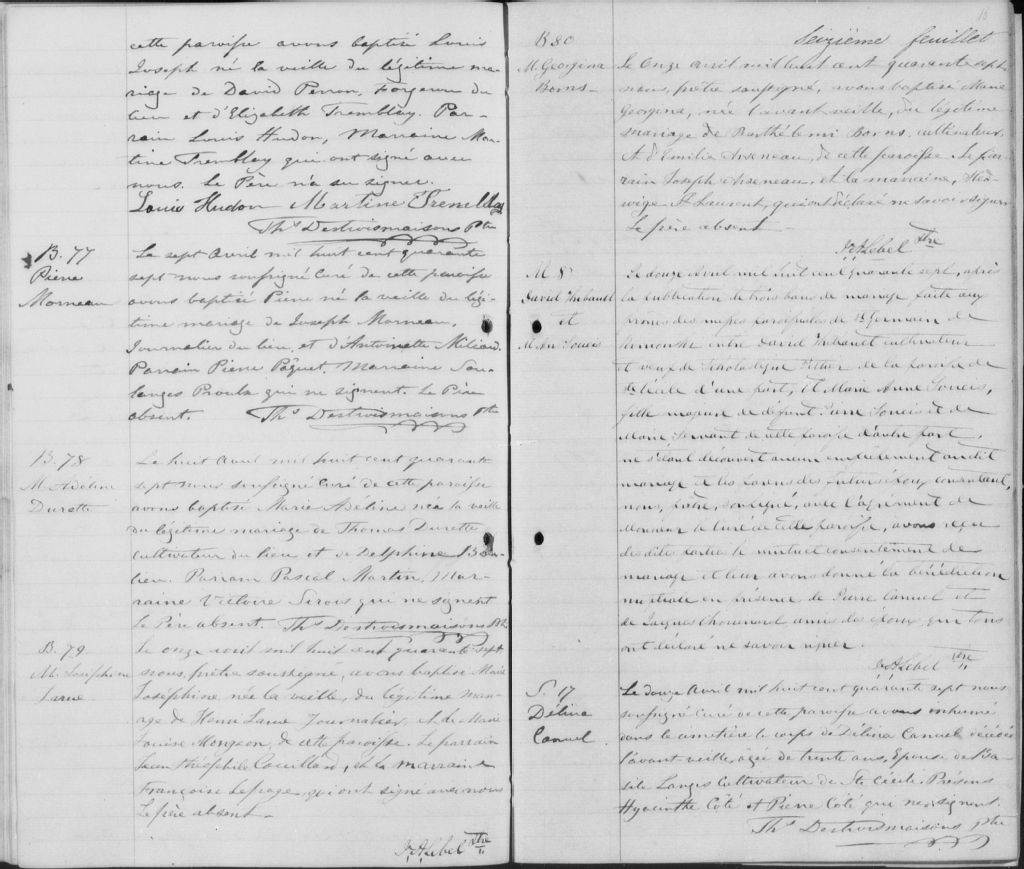 cette paroisse avons baptisé Louis
Joseph né la veille du légitime ma-
riage de David Perron, Forgeron du
lieu et d'Elizabeth Tremblay. Par-
rain Louis Hudon, Marraine Mar-
tine Tremblay qui ont signé avec
nous. Le Père n'a su signer.
Louis Hudon Martine Tremblay
Ths Destroismaisons Ptre
B. 77
Pierre
Morneau
Le sept Avril mil huit cent quarante
sept nous soussigné Curé de cette paroisse
avons baptisé Pierre né la veille du légi-
time mariage de Joseph Morneau,
Journalier du lieu, et d'Antoinette
Parrain Pierre Pâquet, Marraine So-
langes Proulx qui ne signent. Le Père
absent. Ths Destroismaisons Ptre
B. 78
M. Adéline
Durette
Le huit Avril mil huit cent quarante
sept nous soussigné Curé de cette paroisse
avons baptisé Marie Adéline née la veille
du légitime mariage de Thomas Durette
Cultivateur du lieu et de Delphine Beau-
lieu. Parrain Pascal Martin, Mar-
raine Victoire Sirois qui ne signent
Le Père absent. Ths Destroismaisons Ptre
B. 79
M. Josephine
Larue
Le onze avril mil huit cent quarante sept
nous, prêtre soussigné, avons baptisé Marie
Josephine, née la veille, du légitime mari-
age de Henri Larue Journalier, et de Marie
Louise Mongeon, de cette paroisse. Le parrain
Jean Théophile Couillard, et la marraine
Françoise Lepage, qui ont signé avec nous
Le père absent.
J. A. Lebel Ptre
16
Seizième feuillet
B 80
M Georgina
Borns
Le Onze avril mil huit cent quarante sept
nous, prêtre soussigné, avons baptisé Marie
Georgina, née l'avant veille, du légitime
mariage de Barthélemi Borns, cultivateur,
et d'Emilie Arseneau, de cette paroisse. Le par-
rain Joseph Arseneau, et la marraine, Hed-
wige St Laurent, qui ont déclaré ne savoir signer
Le père absent
J. A. Lebel Ptre
M 8
David Thibault
et
M. An. Soucis
Le douze Avril mil huit cent quarante sept, après
la publication de trois bans de mariage faite aux
prônes des messes paroissiales de St Germain de
Rimouski entre David Thibault cultivateur
et veuf de Scholastique de la paroisse de
Ste Cécile d'une part, et Marie Anne Soucis,
fille majeure de défunt Pierre Soucis et de
Marie Servant de cette paroisse d'autre part,
ne s'étant découvert aucun empêchement au dit
mariage et les parens des futurs époux consentant,
nous, prêtre, soussigné, avec l'agrément de
Monsieur le Curé de cette paroisse, avons reçu
des dites parties le mutuel consentement de
mariage et leur avons donné la bénédiction
nuptiale en présence de Pierre Canuel et
de Jacques Chouinard, amis des époux, qui tous
ont déclaré ne savoir signer.
J. A. Lebel Ptre
S. 17
Délina
Canuel
Le douze Avril mil huit cent quarante sept nous
soussigné Curé de cette paroisse avons inhumé
dans le cimetière le corps de Délina Canuel décédée
l'avant veille, agée de trente ans, Epouse de Ba-
sile Langis Cultivateur de Ste Cécile. Présens
Hyacinthe Côté et Pierre Côté qui ne signent.
Ths Destroismaisons ptre